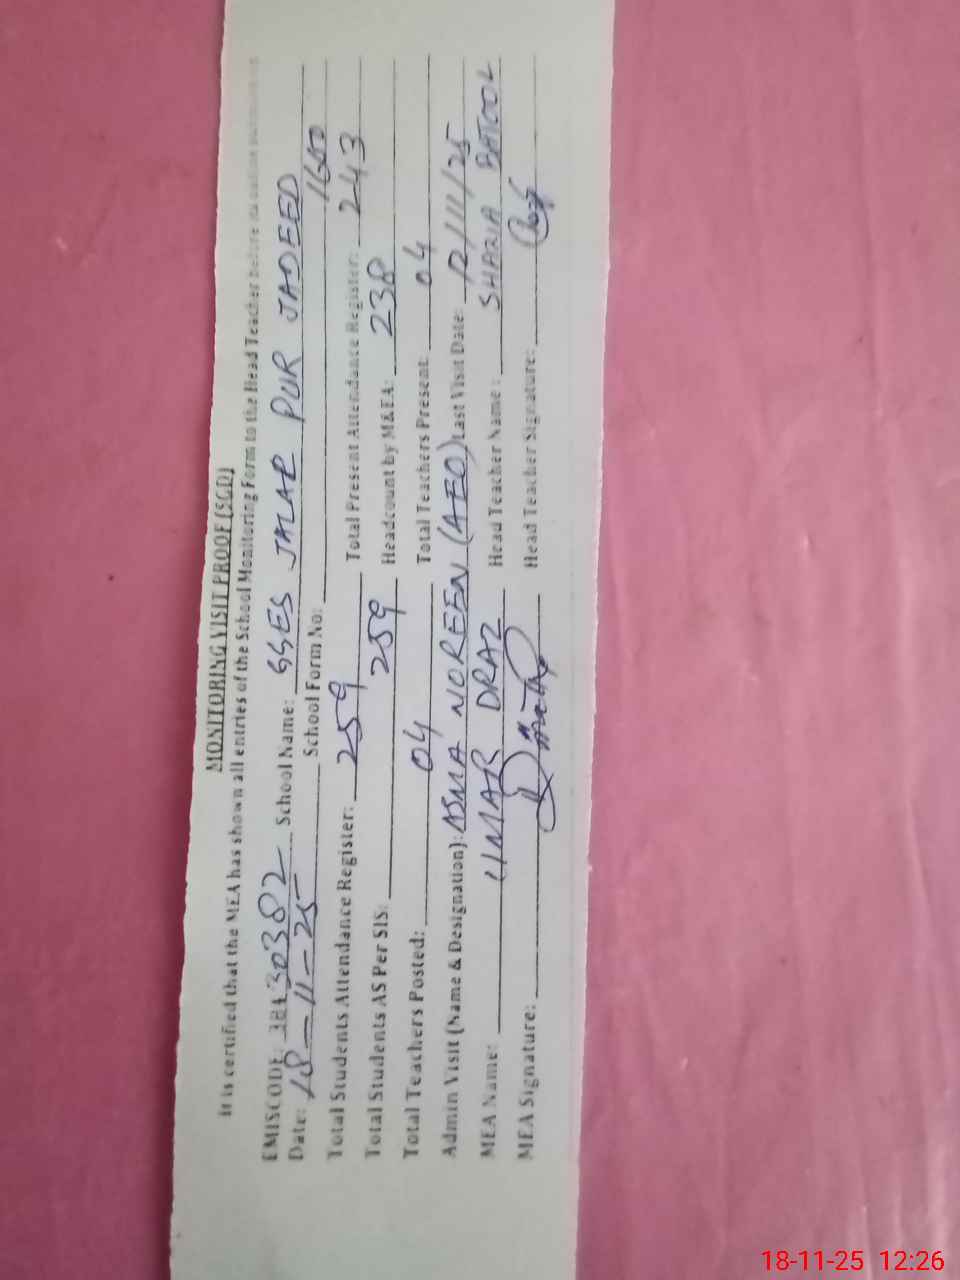 MONITORING VISIT PROOF (SGD)
It is certified that the MEA has shown all entries of the School Monitoring Form to the Head Teacher before
EMISCODE: 38430382 School Name: GGES JALAP PUR JADEED
Date: 18-11-25 School Form No: 1680
Total Students Attendance Register: 259 Total Present Attendance Register: 243
Total Students AS Per SIS: 259 Headcount by M&EA: 238
Total Teachers Posted: 04 Total Teachers Present: 04
Admin Visit (Name & Designation): ASMA NOREEN (AEO) Last Visit Date: 12/11/25
MEA Name: UMAR DRAZ Head Teacher Name: SHAZIA BATOOL
MEA Signature: Head Teacher Signature:
18-11-25 12:26